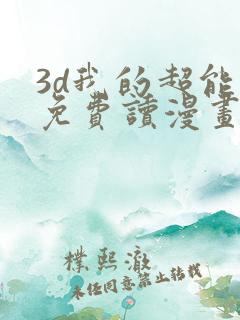 3d我的超能
免費讀漫畫
樸熙澈
未经同意禁止转载